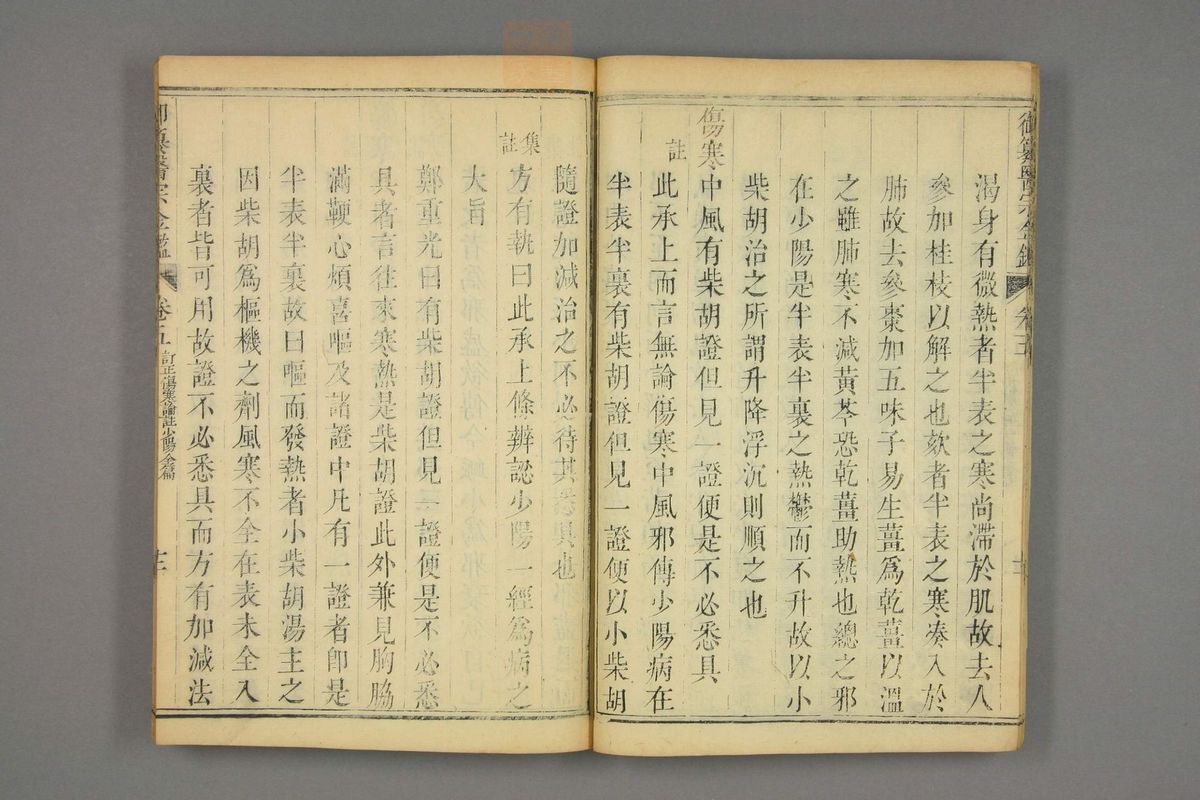 御纂醫宗金鑑 卷五
渴身有微熱者半表之寒尚滯於肌故去人
參加桂枝以解之也欬者半表之寒湊入於
肺故去參棗加五味子易生薑為乾薑以溫
之雖肺寒不減黃芩恐乾薑助熱也總之邪
在少陽是半表半裏之熱鬱而不升故以小
柴胡治之所謂升降浮沉則順之也
傷寒中風有柴胡證但見一證便是不必悉具
註此承上而言無論傷寒中風邪傳少陽病在
半表半裏有柴胡證但見一證便以小柴胡
隨證加減治之不必待其悉具也
集註方有執曰此承上條辨認少陽一經為病之
大旨
鄭重光曰有柴胡證但見一證便是不必悉
具者言往來寒熱是柴胡證此外兼見胸脇
滿鞕心煩喜嘔及諸證中凡有一證者即是
半表半裏故曰嘔而發熱者小柴胡湯主之
因柴胡為樞機之劑風寒不全在表未全入
裏者皆可用故證不必悉具而方有加減法
御纂醫宗金鑑 卷五 訂正傷寒論註少陽全篇